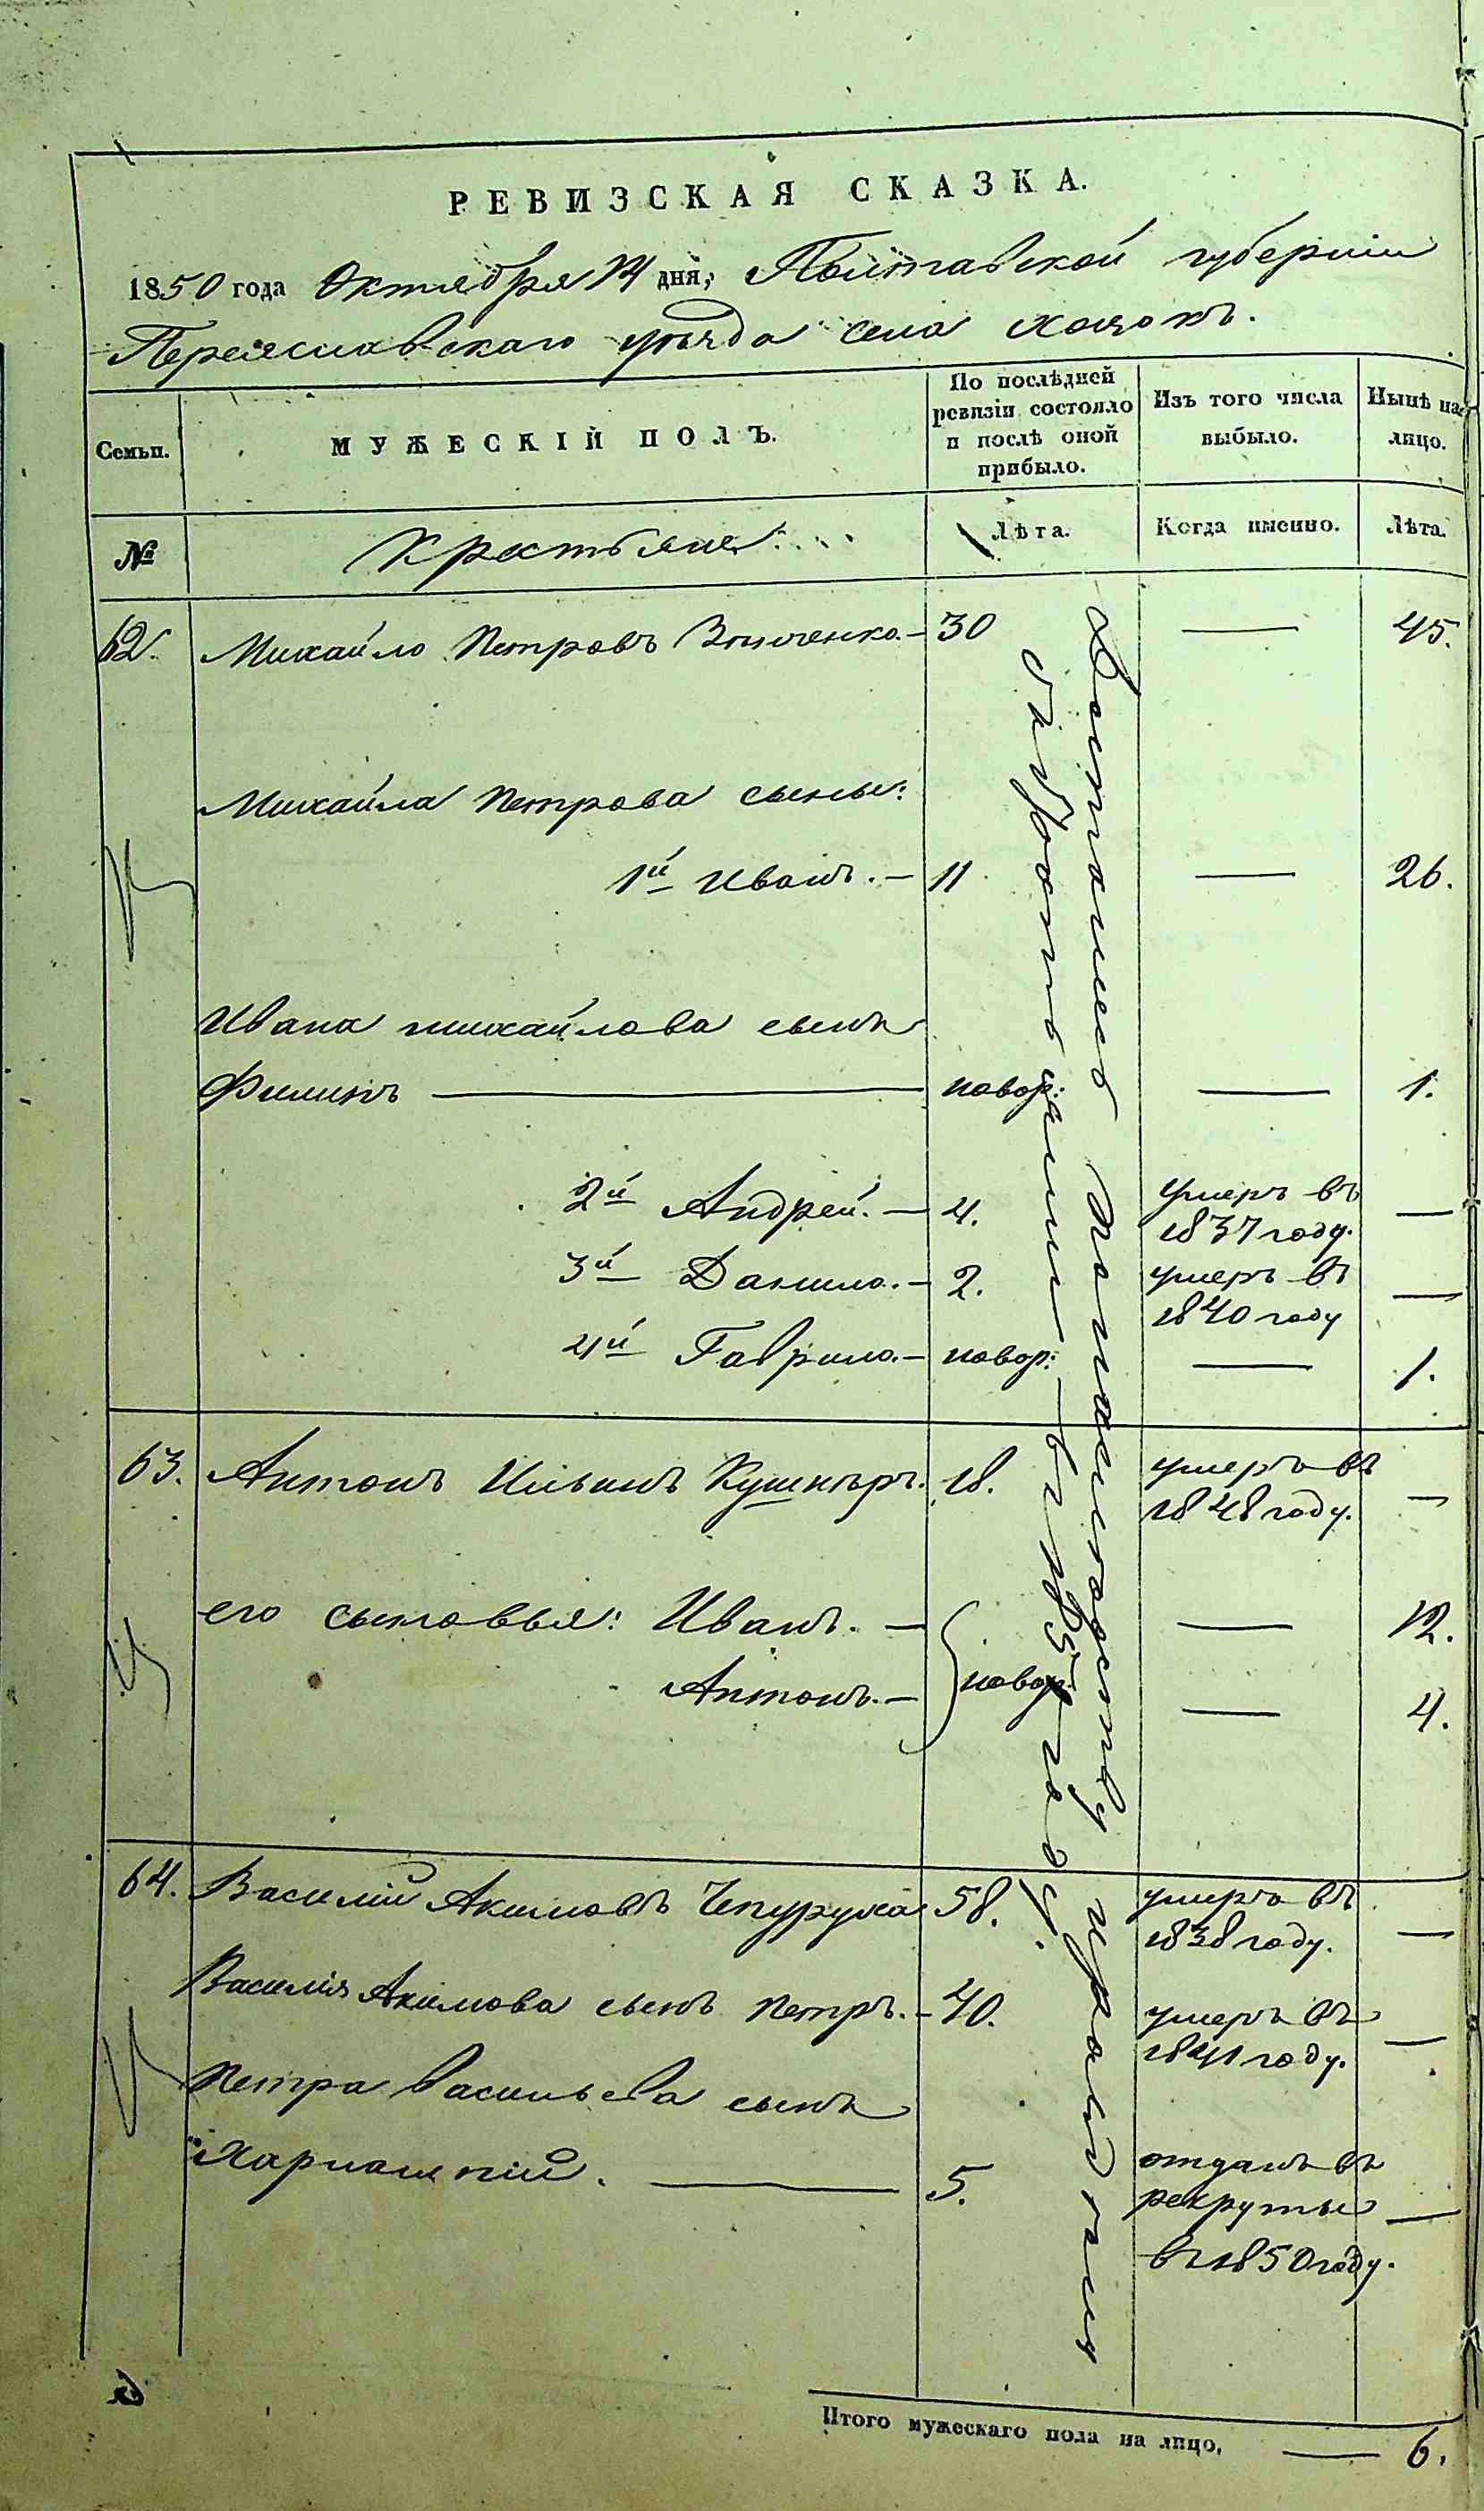 РЕВИЗСКАЯ СКАЗКА.
1850 года Октября 14 дня, Полтавской губерніи
Переяславскаго уѣзда села Хоцокъ.
Семьи. МУЖЕСКІЙ ПОЛЪ. По послѣдней ревизіи состояло и послѣ оной прибыло. Изъ того числа выбыло. Нынѣ на лицо.
№ Крестьяне Лѣта. Когда именно. Лѣта.
62. Михайло Петровъ — 30 — 45.
Михайла Петрова сыны:
1й Иванъ. — 11 — 26.
Ивана Михайлова сынъ
Филипъ — новор: — 1.
2й Андрей. — 4. умеръ въ 1837 году. —
3й Данило. — 2. умеръ въ 1840 году —
4й Гаврило. — новор: — 1.
63. Антонъ Ильинъ Кушниръ. 18. умеръ въ 1848 году. —
его сыновья: Иванъ. — новор: — 12.
Антонъ. — — 4.
64. Василій Акимовъ Чепуруха 58. умеръ въ 1838 году. —
Василія Акимова сынъ Петръ. — 40. умеръ въ 1841 году. —
Петра Васильева сынъ
Харлампій. — 5. отданъ въ рекруты въ 1850 году. —
Достались по наслѣдству
въ 1835 году.
Итого мужескаго пола на лицо, — 6.